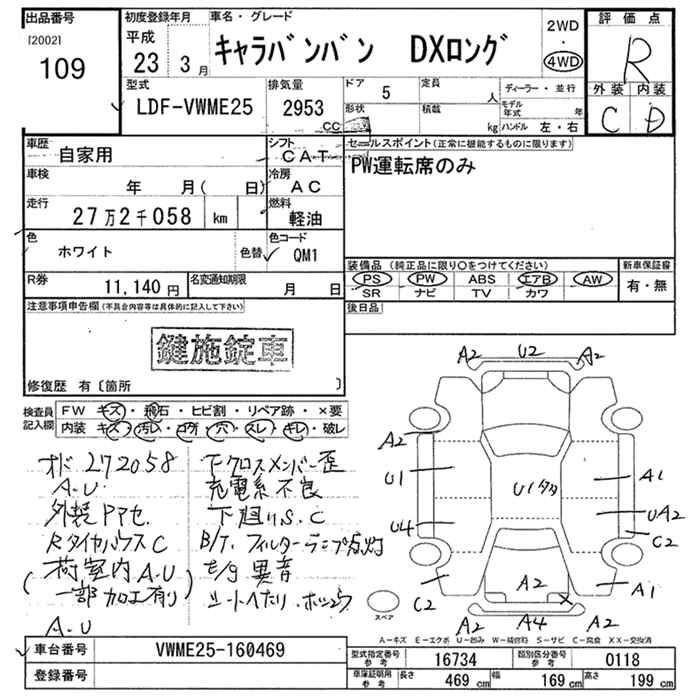 出品番号
[2002]
109
初度登録年月
平成
23 3月
車名・グレード
キャラバンバン DXロング
2WD
・
4WD
評価点
R
外装 内装
C D
型式
LDF-VWME25
排気量
2953
CC
ドア
5
定員
人
形状
積載
kg
ディーラー・並行
モデル年式 年
ハンドル 左・右
車歴
自家用
シフト
CAT
セールスポイント(正常に機能するものに限ります)
PW運転席のみ
車検
年 月( 日)
冷房
AC
走行
27万2千058 km
燃料
軽油
色
ホワイト
色替
色コード
QM1
R券
11,140円
名変通知期限
月 日
装備品(純正品に限り○をつけてください)
PS PW ABS エアB AW
SR ナビ TV カワ
新車保証書
有・無
後日品
注意事項申告欄(不具合内容等は具体的に記入して下さい)
鍵施錠車
修復歴 有〔箇所 〕
検査員記入欄
FW キズ・飛石・ヒビ割・リペア跡・×要
内装 キズ・汚レ・コゲ・穴・スレ・キレ・破レ
オド 272058
A.U
外装PPセ
RタイヤハウスC
(荷室内A.U
一部加工有り)
A.U
下クロスメンバー歪
充電系不良
下廻りS.C
B/T.フィルターランプ点灯
E/g異音
シートヘたり.
A2 U2 A2
A2
U1
U4
C2
U1
A1
UA2
C2
A1
A2
X
A2 A4 A2
スペア
A-キズ E-エクボ U-凹み W-補修跡 S-サビ C-腐食 XX-交換済
車台番号
VWME25-160469
登録番号
型式指定番号 参考
16734
類別区分番号 参考
0118
車庫証明用 参考
長さ 469 cm
幅 169 cm
高さ 199 cm